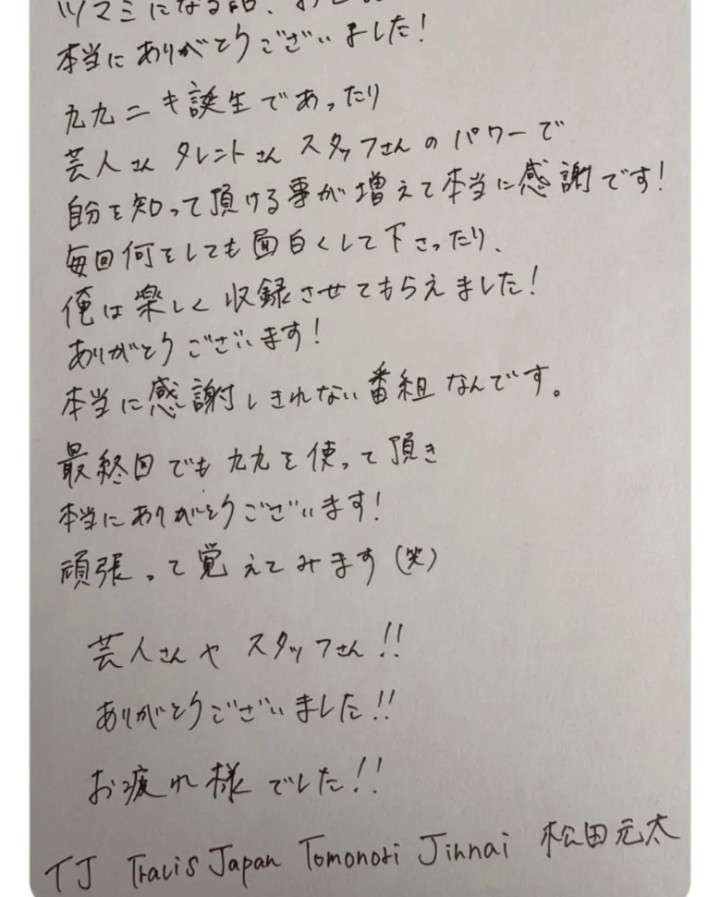 ツマミになる話、
本当にありがとうございました!
九九ニキ誕生であったり
芸人さん タレントさん スタッフさんのパワーで
自分を知って頂ける事が増えて本当に感謝です!
毎回何をしても面白くして下さったり、
俺は楽しく収録させてもらえました!
ありがとうございます!
本当に感謝しきれない番組なんです。
最終回でも九九を使って頂き
本当にありがとうございます!
頑張って覚えてみます(笑)
芸人さんや スタッフさん!!
ありがとうございました!!
お疲れ様でした!!
TJ Travis Japan Tomonori Jinnai 松田元太